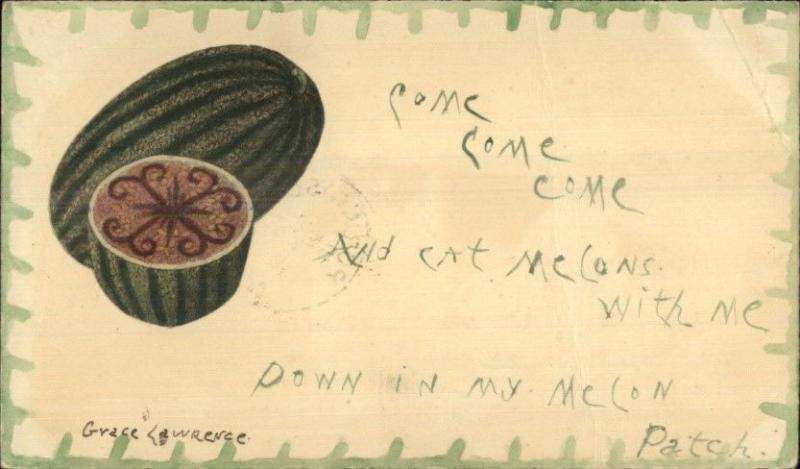 Come
Come
Come
And eat Melons
With Me
Down in my Melon
Patch.
Grace Lawrence.